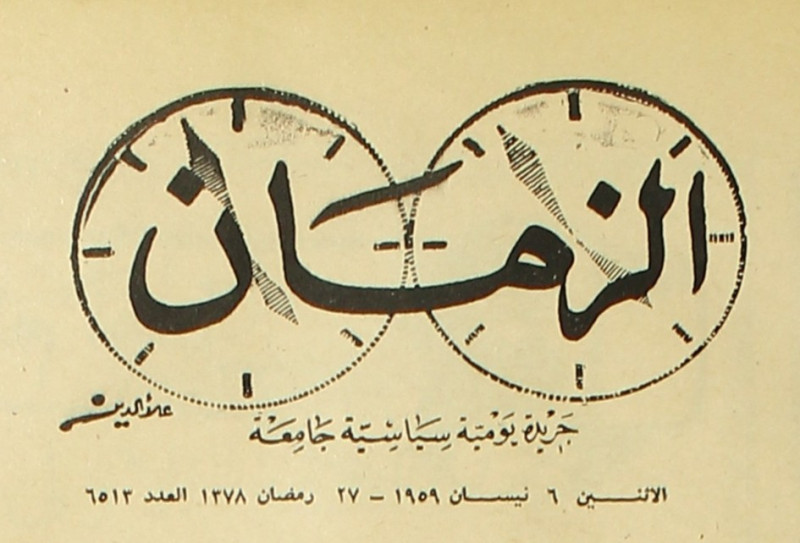 الزمان
علاء الدين
جَرِيْدة يَوْميّة سِيَاسِيّة جَامِعَة
الاثنين ٦ نيسان ١٩٥٩ - ٢٧ رمضان ١٣٧٨ العدد ٦٥١٣